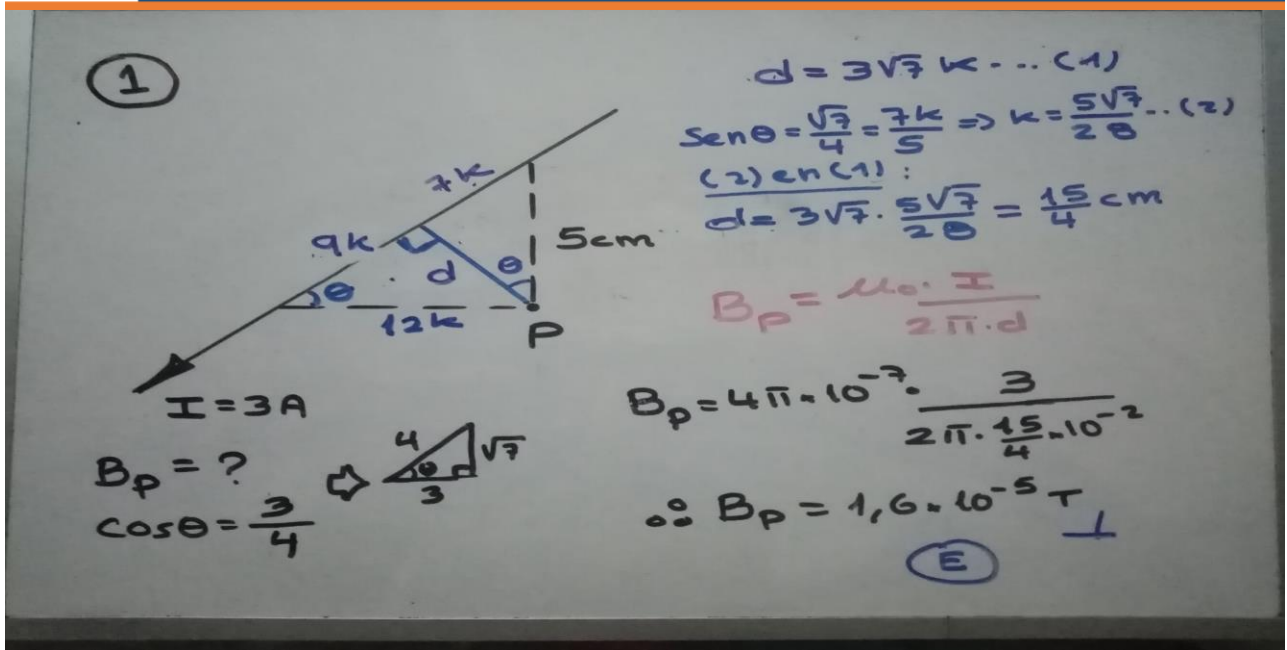 1
7k
9k
5cm
d
θ
θ
12k
P
I = 3A
Bp = ?
cosθ = 3/4 ⇨ 4 θ √7 3
d = 3√7 k ... (1)
Senθ = √7/4 = 7k/5 => k = 5√7/28 .. (2)
(2) en (1) :
d = 3√7 . 5√7/28 = 15/4 cm
Bp = μ₀ . I/2π.d
Bp = 4π.10⁻⁷ . 3/2π.15/4.10⁻²
∴ Bp = 1,6.10⁻⁵ T
E